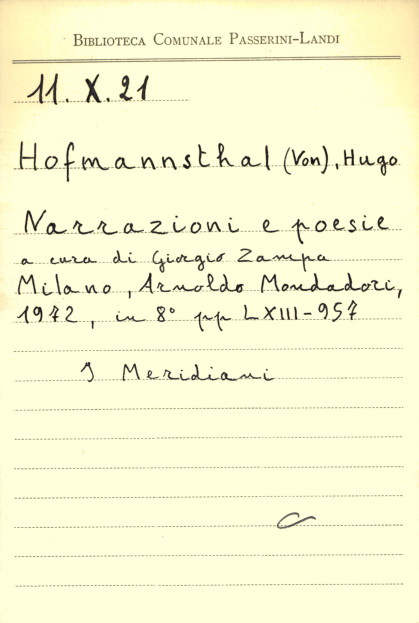 BIBLIOTECA COMUNALE PASSERINI-LANDI
11. X. 21
Hofmannsthal (Von), Hugo
Narrazioni e poesie
a cura di Giorgio Zampa
Milano, Arnoldo Mondadori,
1972, in 8° pp LXIII-957
I Meridiani